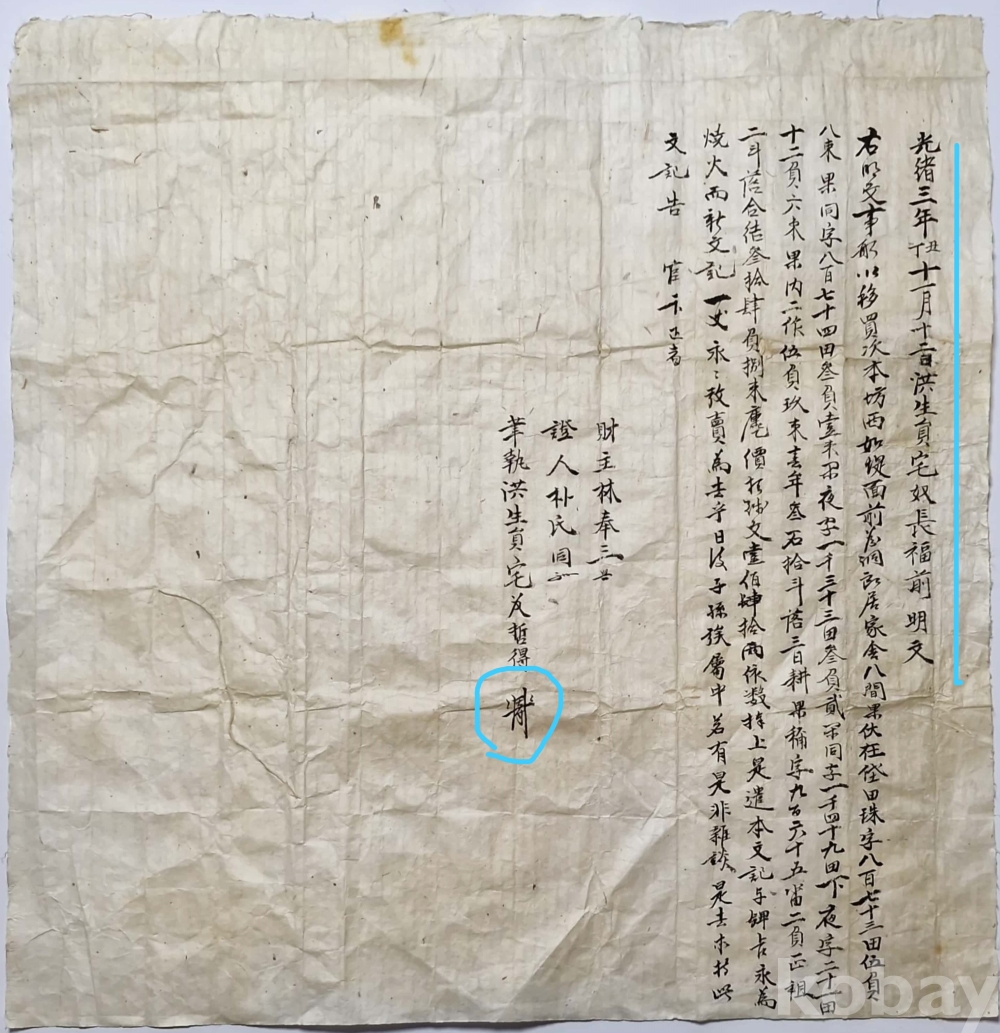 光緖三年丁丑十一月十二日洪生員宅奴長福前明文
右明文事段以移買次本坊西如堤面前 洞 居家舍八間果伏在垈田珠字八百七十三田伍負
八束果同字八百七十四田叁負壹束果夜字一千三十三田叁負貳束同字一千四十九田下夜字二十一田
十二負六束果內二作伍負玖束 年叁石拾斗落三日耕果稱字九百六十五畓二負正租
二斗落合結叁拾肆負捌束 價折錢文壹佰肆拾兩依數捧上是遣本文記 永爲
燒火而新文記一丈永〻放賣爲去乎日後子孫族屬中若有是非雜談是去木持此
文記告 官卞正者
財主林奉三
證人朴氏同
筆執洪生員宅 哲得
kobay